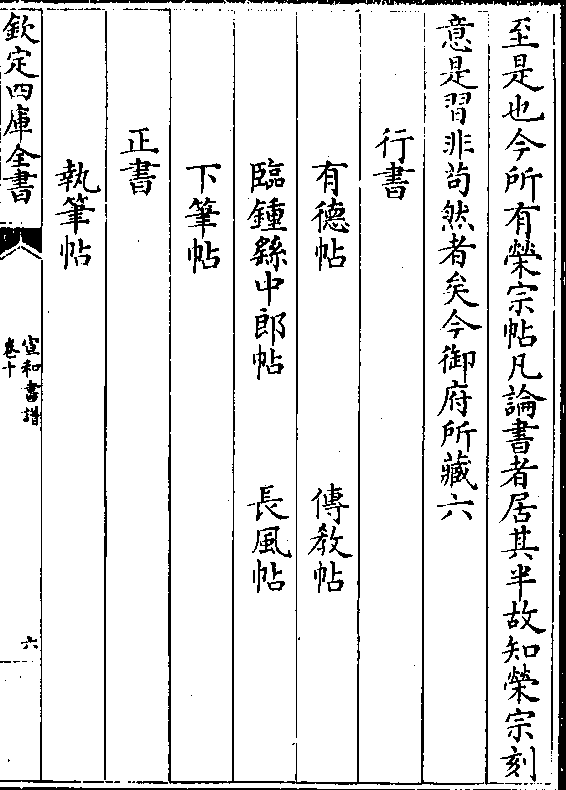 至是也今所有榮宗帖凡論書者居其半故知榮宗刻
意是習非茍然者矣今御府所藏六
行書
有德帖　傳教帖
臨鍾繇中郎帖　長風帖
下筆帖
正書
執筆帖
欽定四庫全書
宣和書譜
卷十
六